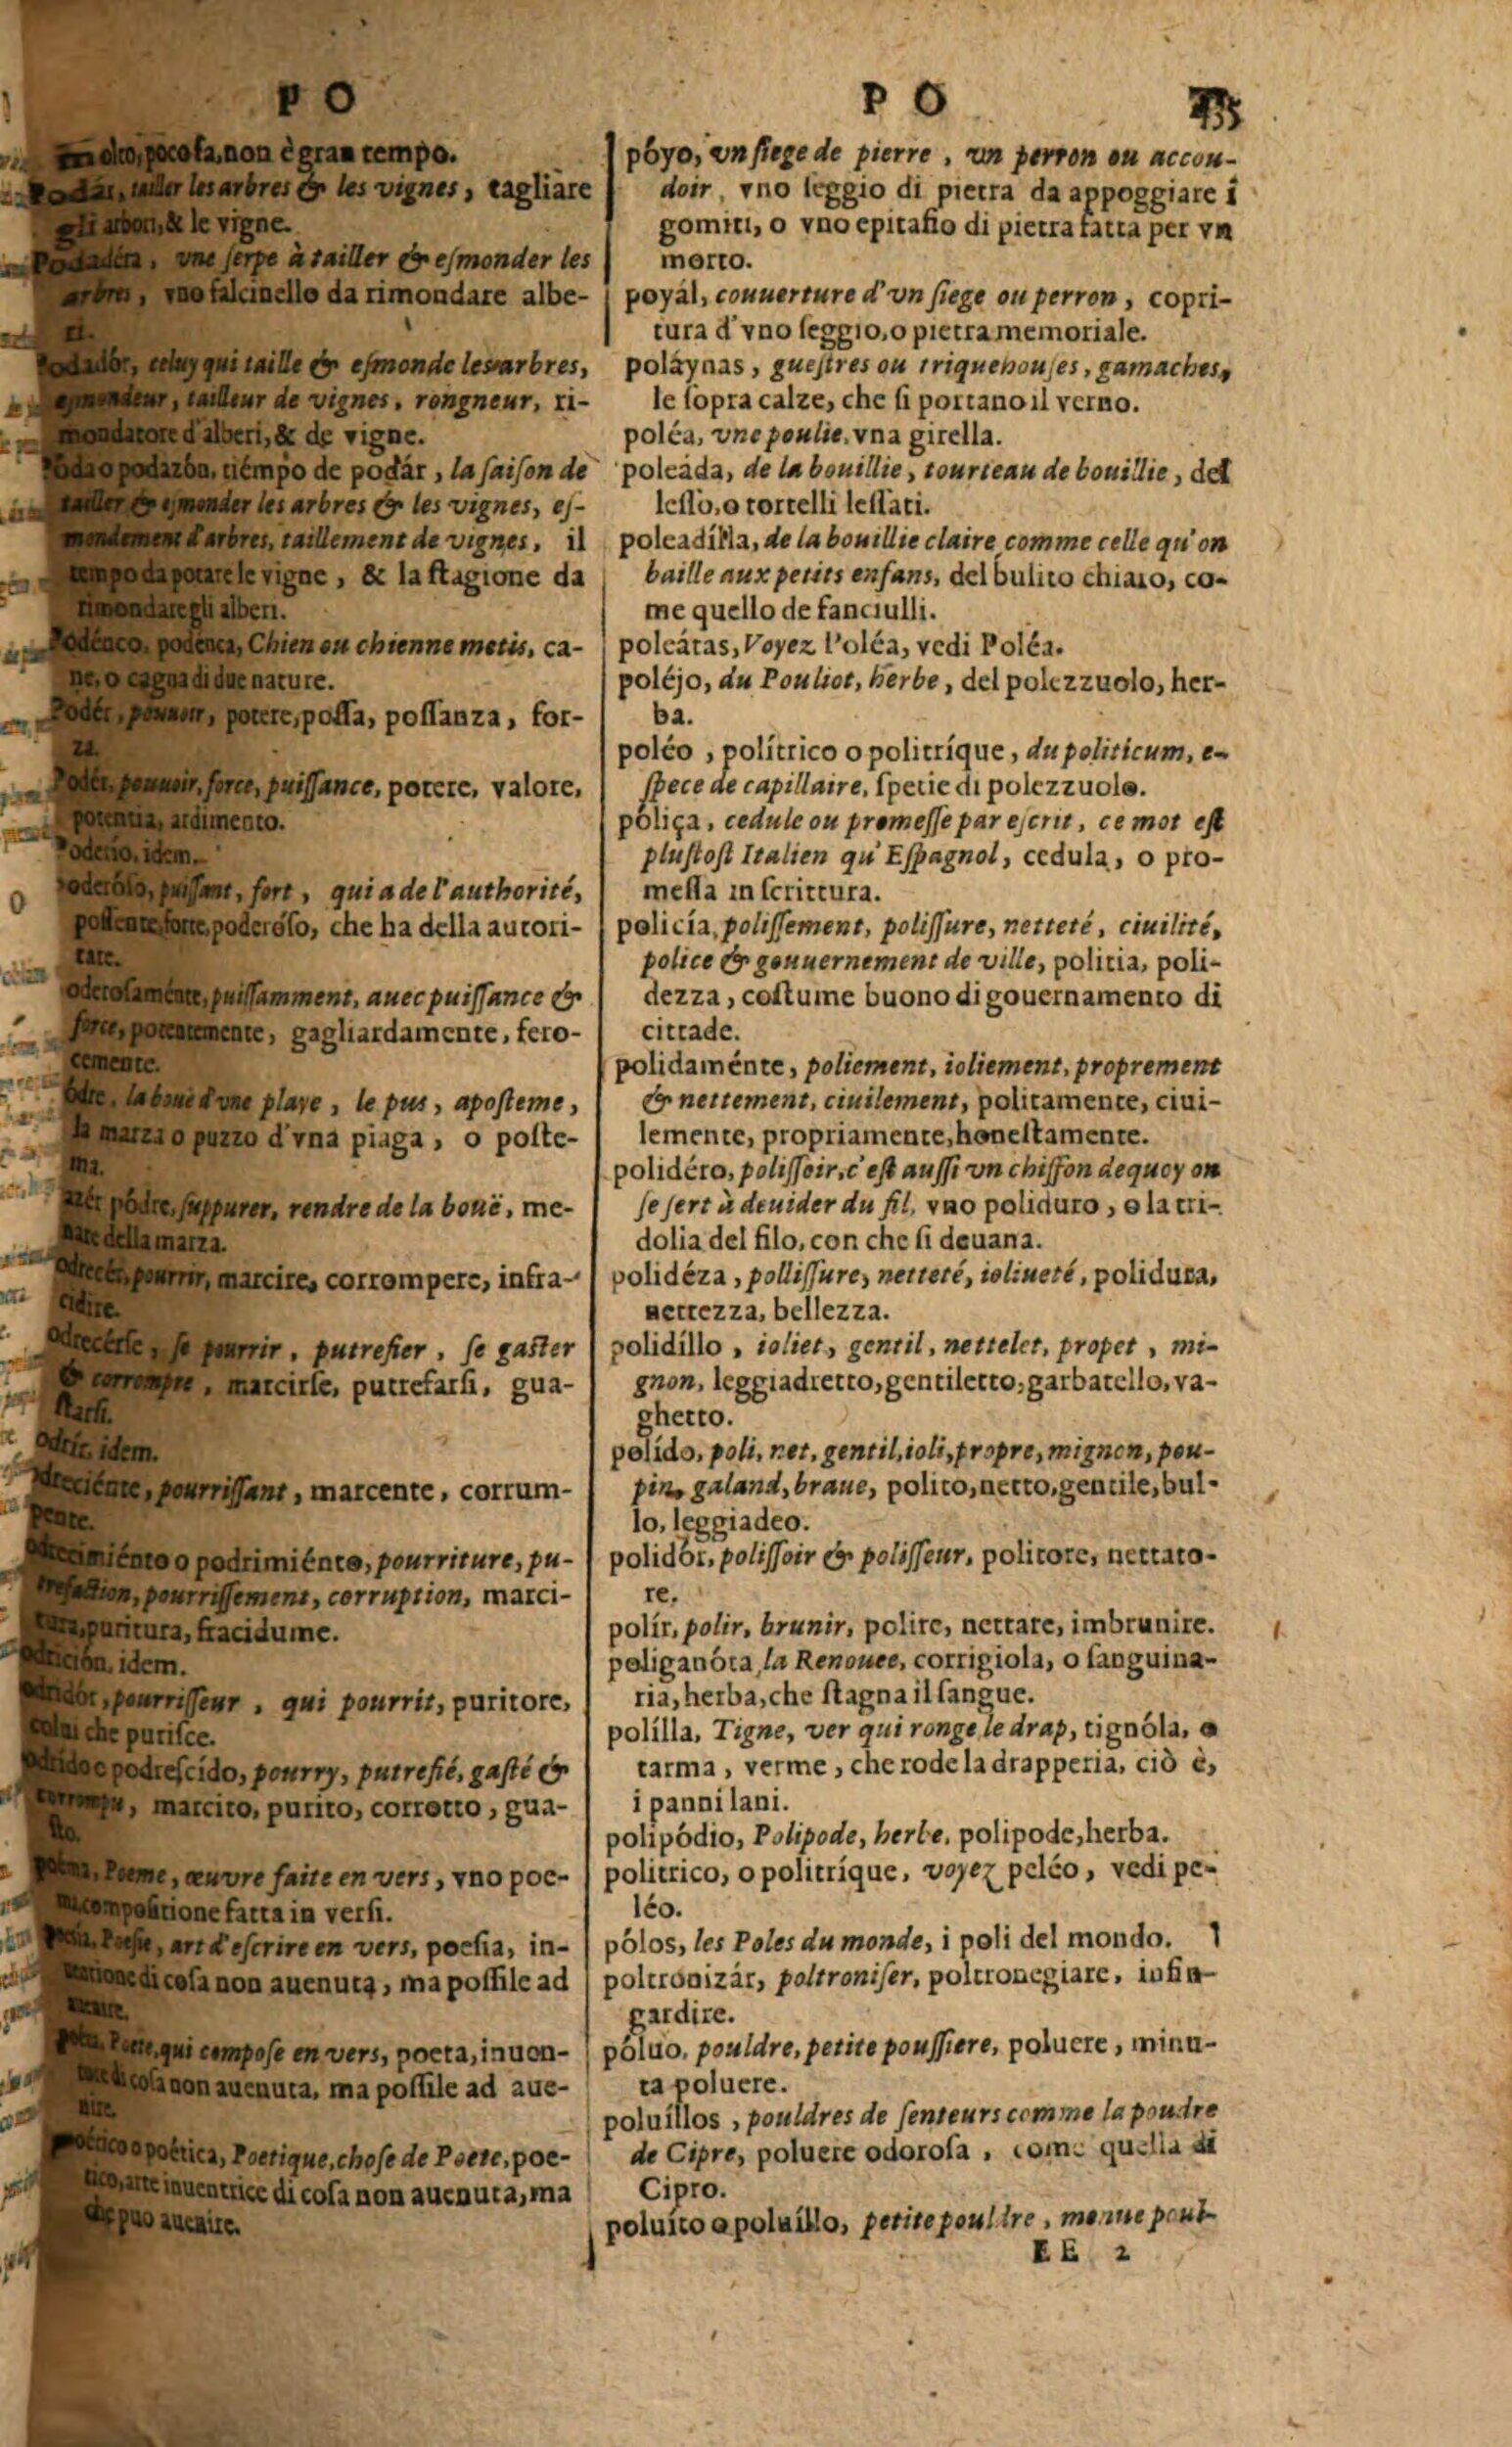 P O
olto, poco fa, non è gran tempo.
Podár, tailler les arbres & les vignes, tagliare
gli arbori, & le vigne.
Podadéra, vne ſerpe à tailler & eſmonder les
arbres, vno falcinello da rimondare albe-
ri.
Podadór, celuy qui taille & eſmonde les arbres,
eſmondeur, tailleur de vignes, rongneur, ri-
mondatore d'alberi, & de vigne.
Póda o podazón, tiémpo de podár, la ſaiſon de
tailler & eſmonder les arbres & les vignes, eſ-
mondement d'arbres, taillement de vignes, il
tempo da potare le vigne, & la ſtagione da
rimondare gli alberi.
Podénco, podénca, Chien ou chienne metis, ca-
ne, o cagna di due nature.
Podér, pouuoir, potere, poſſa, poſſanza, for-
za.
Podér, pouuoir, force, puiſſance, potere, valore,
potentia, ardimento.
Poderío, idem.
oderóſo, puiſſant, fort, qui a de l'authorité,
poſſente, forte, poderóſo, che ha della autori-
tate.
oderoſaménte, puiſſamment, auec puiſſance &
force, potentemente, gagliardamente, fero-
cemente.
ódre, la bouë d'vne playe, le pus, apoſteme,
la marza o puzzo d'vna piaga, o poſte-
ma.
pódre, ſuppurer, rendre de la bouë, me-
nare della marza.
odrecér, pourrir, marcire, corrompere, infra-
cidire.
odrecérſe, ſe pourrir, putrefier, ſe gaſter
& corrompre, marcirſe, putrefarſi, gua-
ſtarſi.
odrír, idem.
odreciénte, pourriſſant, marcente, corrum-
pente.
odrecimiénto o podrimiénto, pourriture, pu-
trefaction, pourriſſement, corruption, marci-
tura, puritura, fracidume.
odrición, idem.
odridór, pourriſſeur, qui pourrit, puritore,
colui che puriſce.
odrido e podreſcído, pourry, putrefié, gaſté &
corrompu, marcito, purito, corrotto, gua-
ſto.
poéma, Poeme, œuvre faite en vers, vno poe-
ma compoſitione fatta in verſi.
poeſia, Poeſie, art d'eſcrire en vers, poeſia, in-
uentione di coſa non auenuta, ma poſſile ad
auenire.
poéta, Poete, qui compoſe en vers, poeta, inuen-
tore di coſa non auenuta, ma poſſile ad aue-
nire.
poético o poética, Poetique, choſe de Poete, poe-
tico, arte inuentrice di coſa non auenuta, ma
che puo auenire.
P O
póyo, vn ſiege de pierre, vn perron ou accou-
doir, vno leggio di pietra da appoggiare i
gomiti, o vno epitafio di pietra fatta per vn
morto.
poyál, couuerture d'vn ſiege ou perron, copri-
tura d'vno ſeggio, o pietra memoriale.
poláynas, gueſtres ou triquehouſes, gamaches,
le ſopra calze, che ſi portano il verno.
poléa, vne poulie, vna girella.
poleáda, de la bouillie, tourteau de bouillie, del
leſſo, o tortelli leſſati.
poleadílla, de la bouillie claire comme celle qu'on
baille aux petits enfans, del bulito chiaro, co-
me quello de fanciulli.
poleátas, Voyez Poléa, vedi Poléa.
poléjo, du Pouliot, herbe, del polezzuolo, her-
ba.
poléo, polítrico o politríque, du politicum, e-
ſpece de capillaire, ſpetie di polezzuolo.
póliça, cedule ou promeſſe par eſcrit, ce mot eſt
pluſtoſt Italien qu'Eſpagnol, cedula, o pro-
meſſa in ſcrittura.
policía, poliſſement, poliſſure, netteté, ciuilité,
police & gouuernement de ville, politia, poli-
dezza, coſtume buono di gouernamento di
cittade.
polidaménte, poliement, ioliement, proprement
& nettement, ciuilement, politamente, ciui-
lemente, propriamente, honeſtamente.
polidéro, poliſſoir, c'eſt auſſi vn chiffon dequoy on
ſe ſert à deuider du fil, vno poliduro, o la tri-
dolia del filo, con che ſi deuana.
polidéza, polliſſure, netteté, ioliueté, polidura,
nettezza, bellezza.
polidíllo, ioliet, gentil, nettelet, propet, mi-
gnon, leggiadretto, gentiletto, garbatello, va-
ghetto.
polído, poli, net, gentil, ioli, propre, mignon, pou-
pin, galand, braue, polito, netto, gentile, bul-
lo, leggiadeo.
polidór, poliſſoir & poliſſeur, politore, nettato-
re.
polír, polir, brunir, polire, nettare, imbrunire.
poliganóta, la Renouee, corrigiola, o ſanguina-
ria, herba, che ſtagna il ſangue.
polílla, Tigne, ver qui ronge le drap, tignóla, o
tarma, verme, che rode la drapperia, ciò è,
i panni lani.
polipódio, Polipode, herbe, polipode, herba.
politrico, o politríque, voyez peléo, vedi pe-
léo.
pólos, les Poles du monde, i poli del mondo.
poltronizár, poltroniſer, poltronegiare, infin-
gardire.
póluo, pouldre, petite pouſſiere, poluere, minu-
ta poluere.
poluíllos, pouldres de ſenteurs comme la poudre
de Cipre, poluere odoroſa, come quella di
Cipro.
poluíto o poluíllo, petite pouldre, menue poul-
E E 2